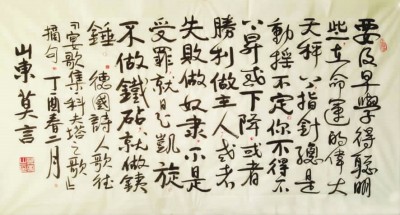 要及早學得聰明
些在命運的偉大
天秤上指針總是
動搖不定你不得不
上昇或下降或者
勝利做主人或者
失敗做奴隸不是
受罪就是凱旋
不做鐵砧就做鐵
錘 德國詩人歌德
宴歌集科夫塔之歌
摘句 丁酉春二月
山東莫言